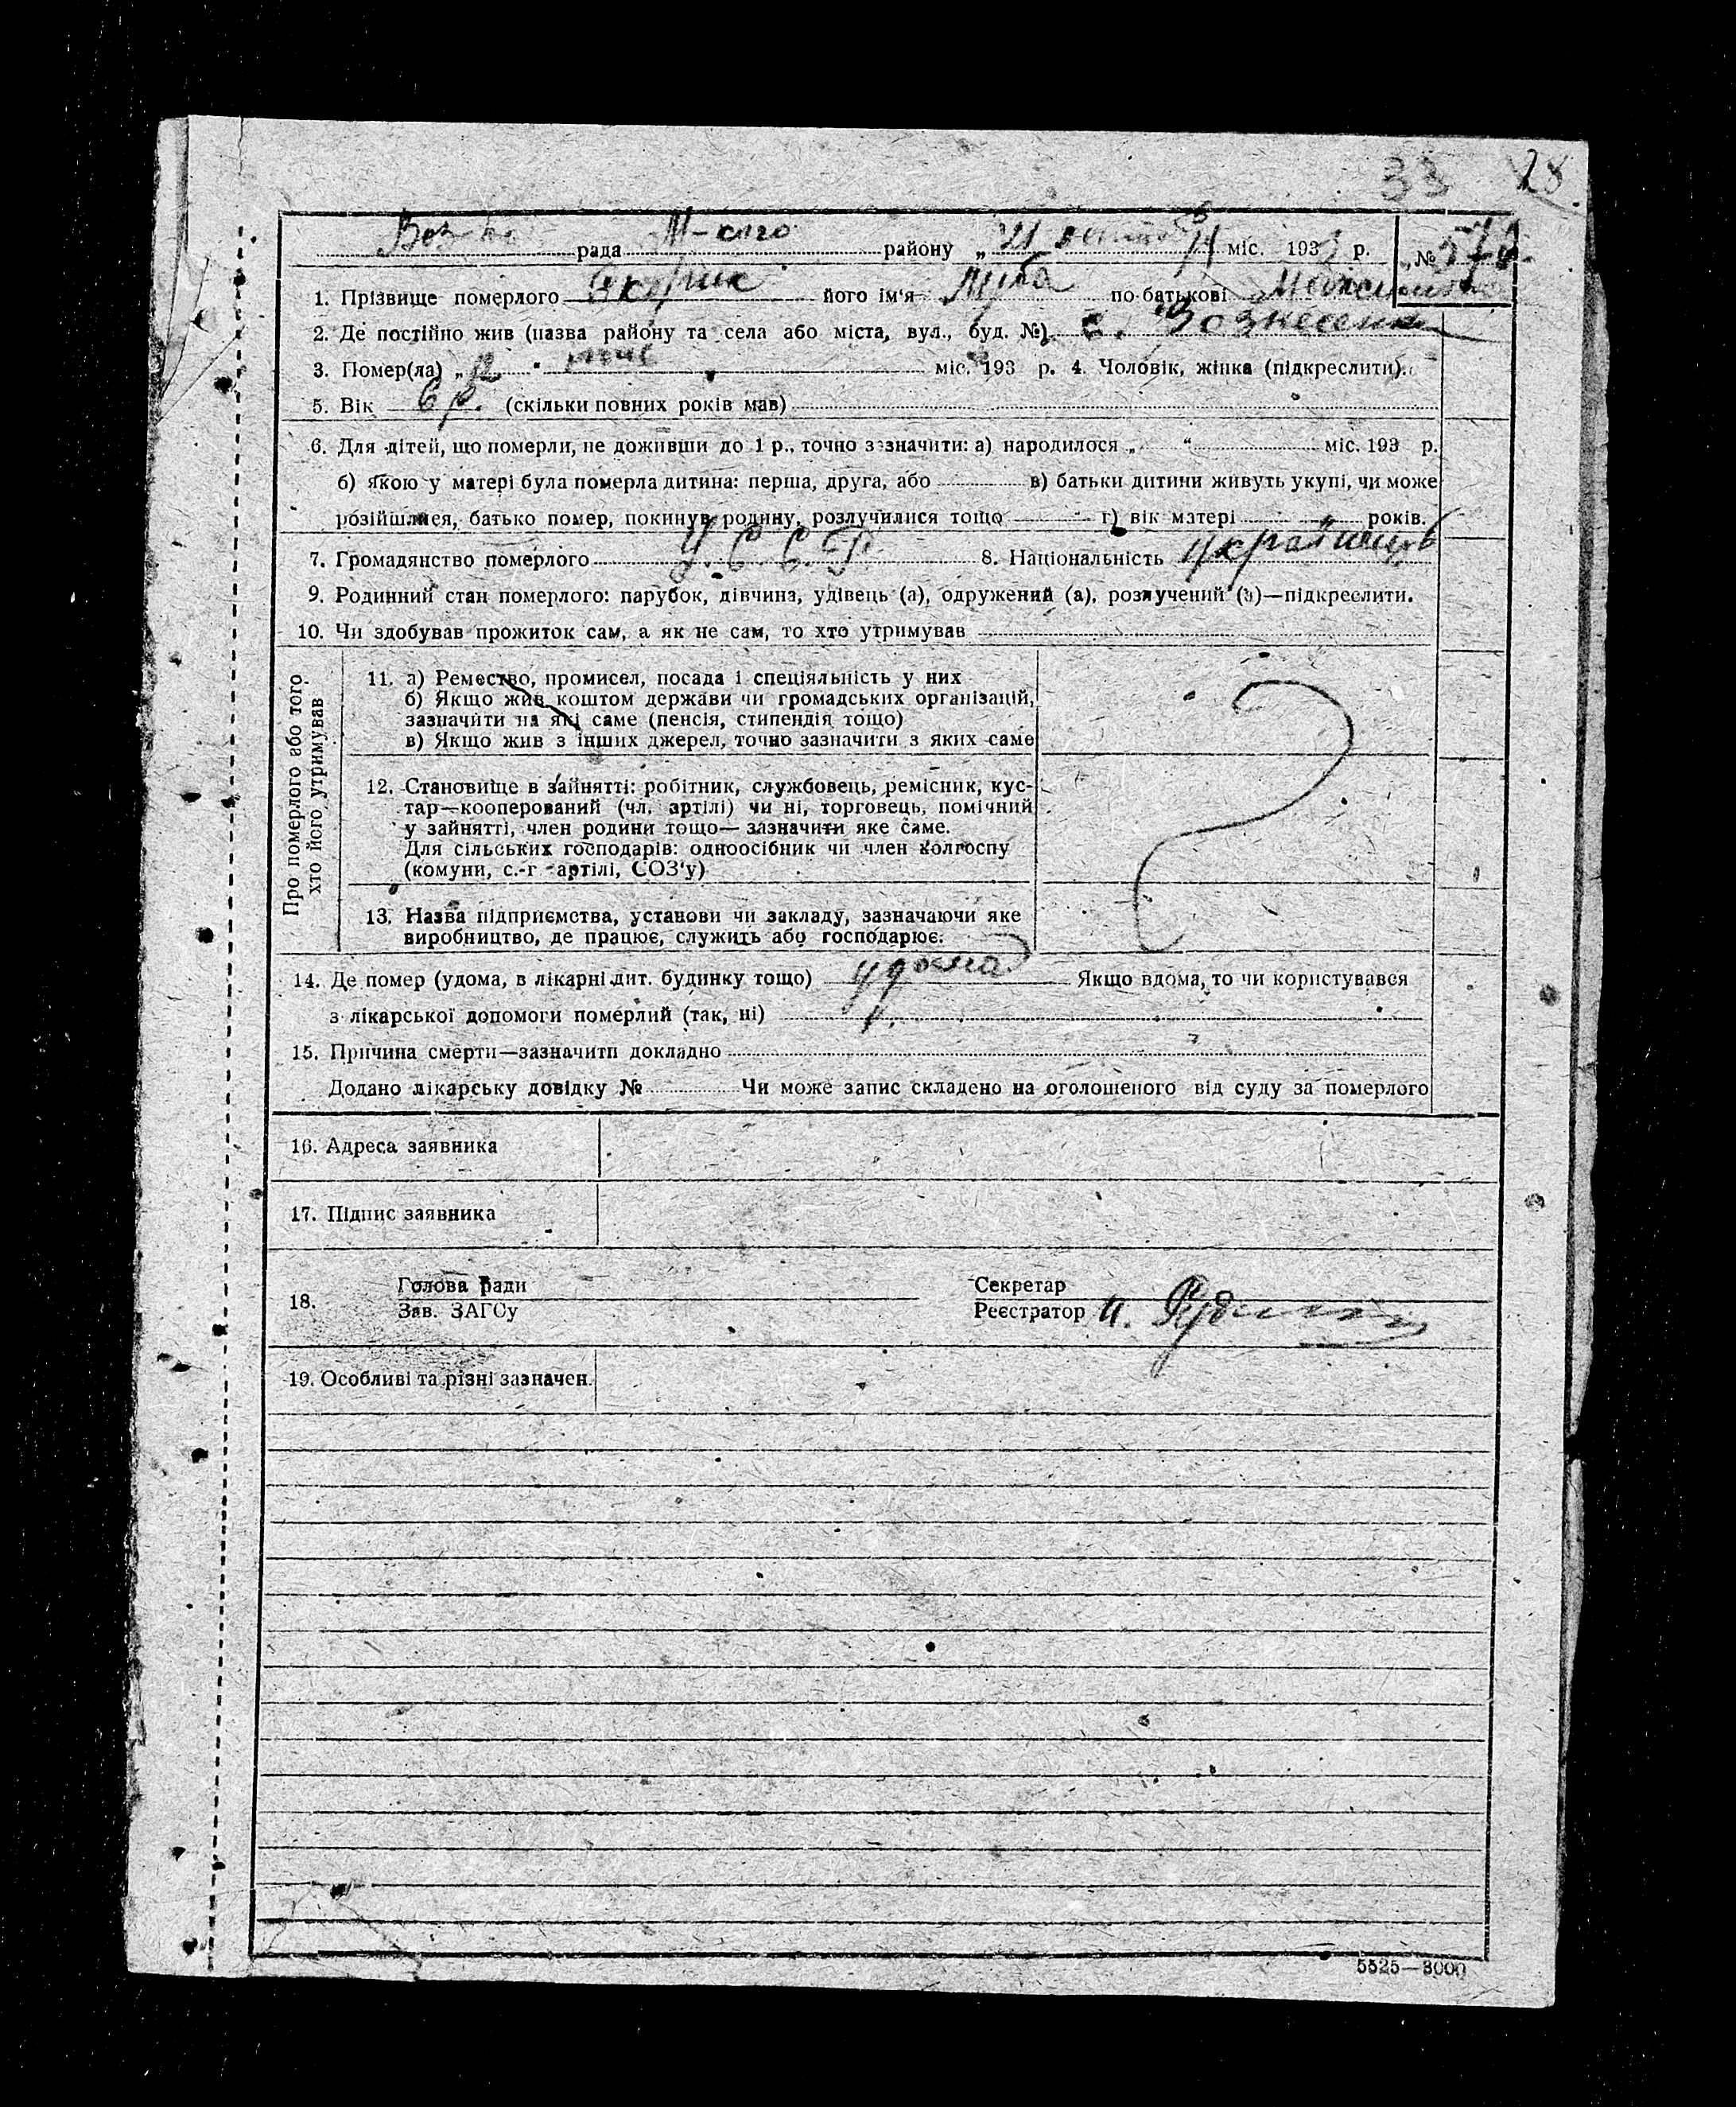 33 28
рада М-кого району „21 міс. 193 р. №
1. Прізвище померлого його ім'я по батькові
2. Де постійно жив (назва району та села або міста, вул., буд. №) с. Вознесенка
3. Помер(ла) „ " міс. 193 р. 4. Чоловік, жінка (підкреслити).
5. Вік 6 р. (скільки повних років мав)
6. Для дітей, що померли, не доживши до 1 р., точно зазначити: а) народилося „ " міс. 193 р.
б) якою у матері була померла дитина: перша, друга, або в) батьки дитини живуть укупі, чи може
розійшлися, батько помер, покинув родину, розлучилися тощо г) вік матері років.
7. Громадянство померлого У.С.С.Р. 8. Національність українець
9. Родинний стан померлого: парубок, дівчина, удівець (а), одружений (а), розлучений (а)—підкреслити.
10. Чи здобував прожиток сам, а як не сам, то хто утримував
Про померлого або того
хто його утримував
11. а) Ремество, промисел, посада і спеціяльність у них
б) Якщо жив коштом держави чи громадських організацій,
зазначити на які саме (пенсія, стипендія тощо)
в) Якщо жив з інших джерел, точно зазначити з яких саме
12. Становище в зайнятті: робітник, службовець, ремісник, кус-
тар—кооперований (чл. артілі) чи ні, торговець, помічний
у зайнятті, член родини тощо— зазначити яке саме.
Для сільських господарів: одноосібник чи член колгоспу
(комуни, с.-г артілі, СОЗ'у)
13. Назва підприємства, установи чи закладу, зазначаючи яке
виробництво, де працює, служить або господарює:
14. Де помер (удома, в лікарні дит. будинку тощо) удома Якщо вдома, то чи користувався
з лікарської допомоги померлий (так, ні)
15. Причина смерти—зазначити докладно
Додано лікарську довідку № Чи може запис складено на оголошеного від суду за померлого
16. Адреса заявника
17. Підпис заявника
18. Голова ради Секретар
Зав. ЗАГСу Реєстратор
19. Особливі та різні зазначен.
5525—3000